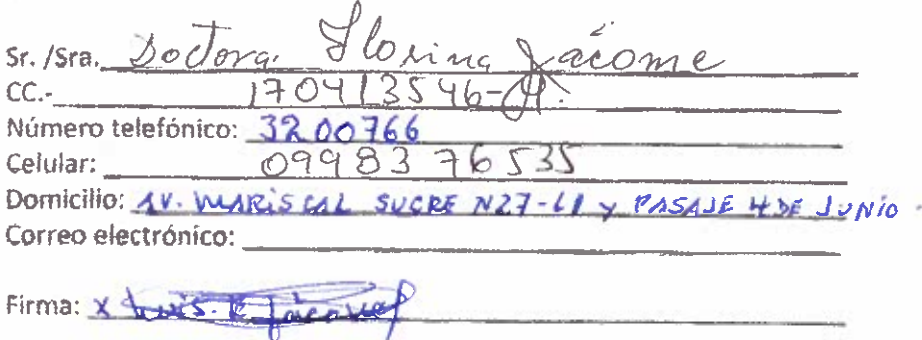 Sr. /Sra. Doctora. Florina Jácome
CC.- 170413546-
Número telefónico: 3200766
Celular: 0998376535
Domicilio: AV. MARISCAL SUCRE N27-61 y PASAJE 4 DE JUNIO.
Correo electrónico:
Firma: x Luis. Jácome